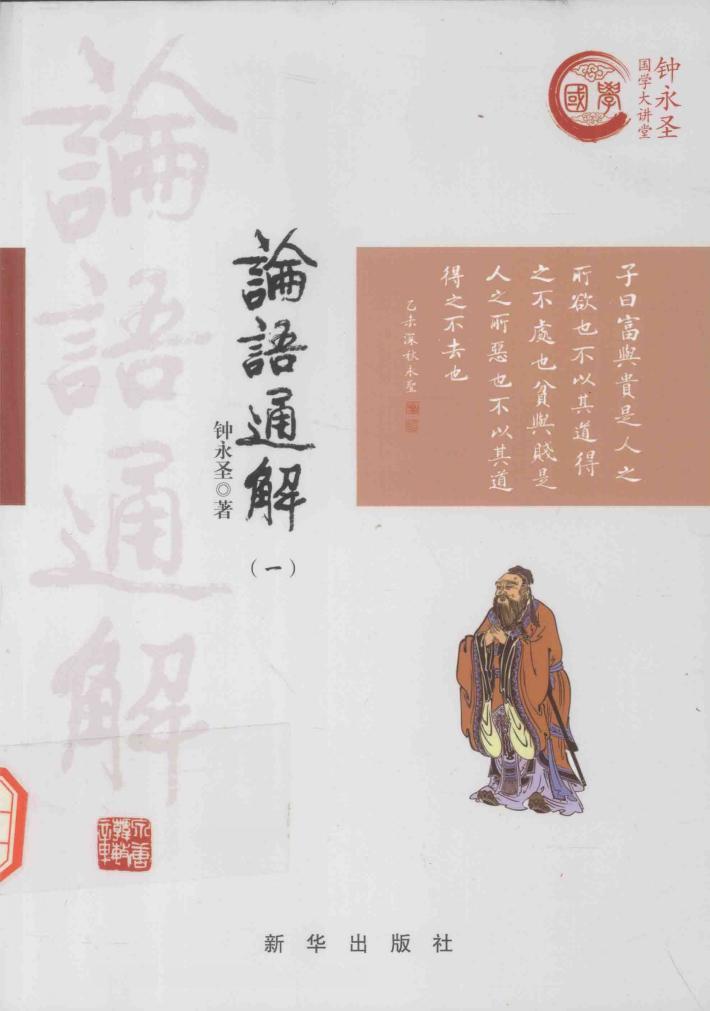 钟永圣
国学大讲堂
國學
論語通解
論語通解
(一)
钟永圣◎著
子曰富與貴是人之
所欲也不以其道得
之不處也貧與賤是
人之所惡也不以其道
得之不去也
乙未深秋永聖
新华出版社